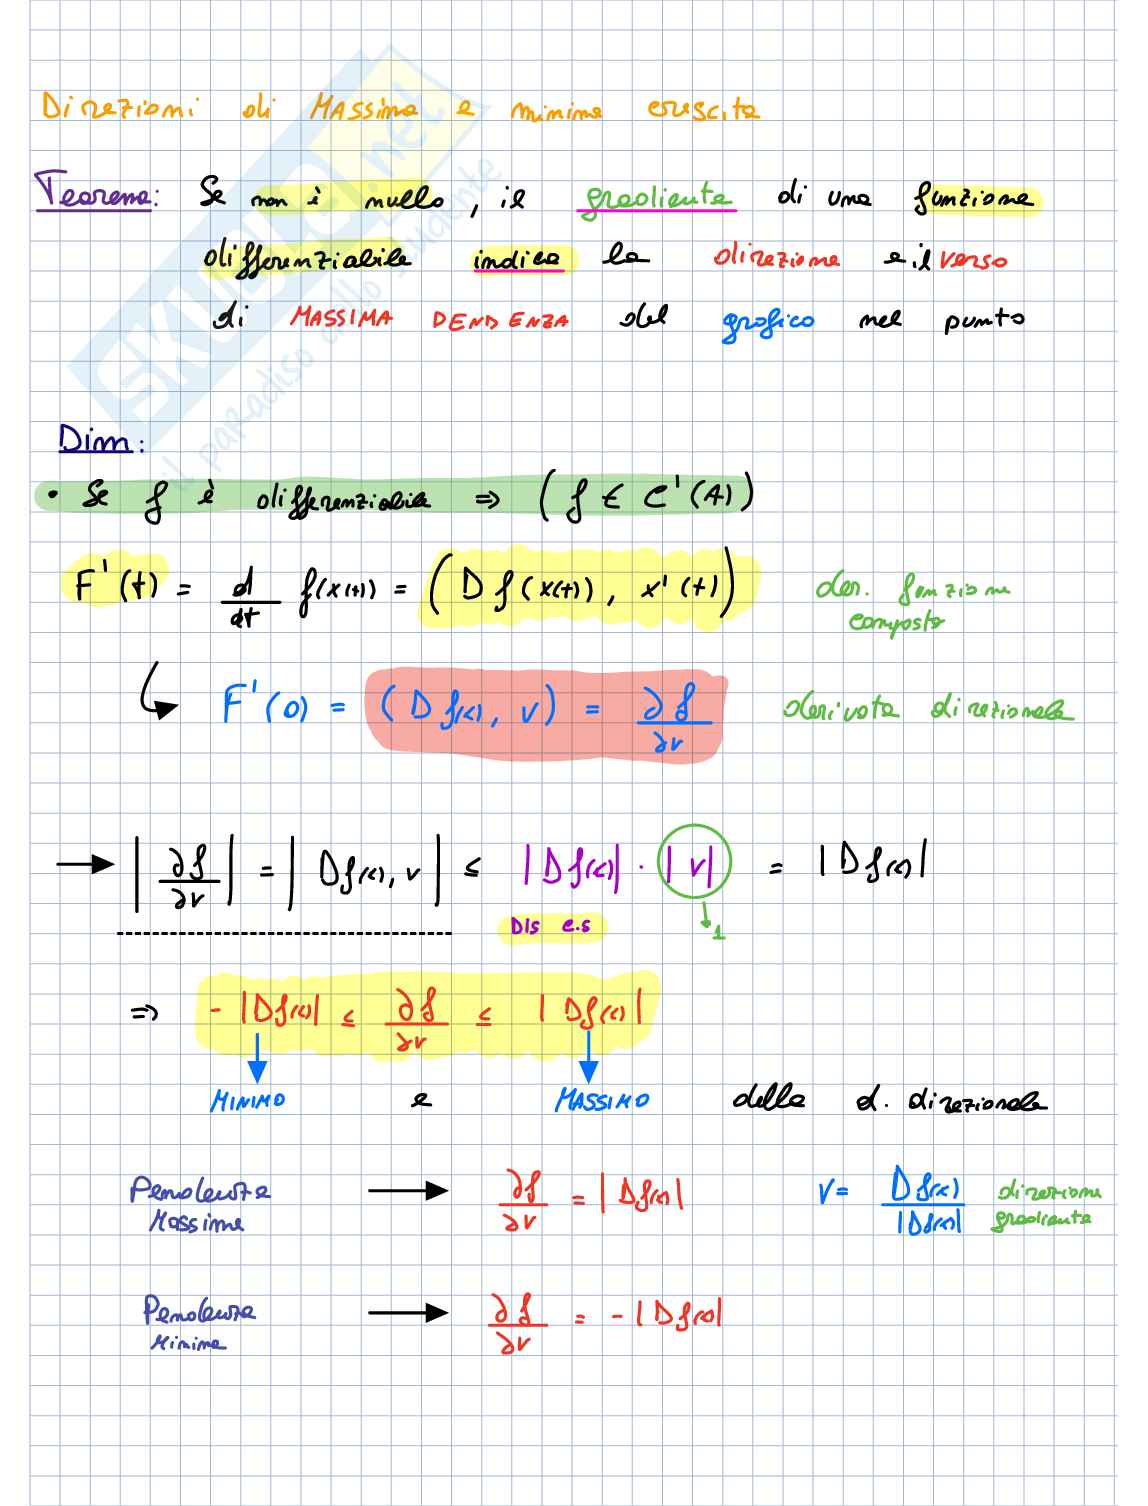 Direzioni di Massima e minima crescita
Teorema: Se non è nullo, il gradiente di una funzione
differenziabile indica la direzione e il verso
di MASSIMA DENDENZA del grafico nel punto
Dim:
• Se f è differenziabile ⇒ (f ∈ C'(A))
F'(t) = d/dt f(x(t)) = (Df(x(t)), x'(t)) der. funzione composta
F'(0) = (Df(x), v) = ∂f/∂v derivata direzionale
→ |∂f/∂v| = |Df(x), v| ≤ |Df(x)| · |v| = |Df(x)|
DIS c.s 1
⇒ -|Df(x)| ≤ ∂f/∂v ≤ |Df(x)|
MINIMO e MASSIMO della d. direzionale
Pendenza Massima → ∂f/∂v = |Df(x)| v = Df(x)/|Df(x)| direzione gradiente
Pendenza Minima → ∂f/∂v = -|Df(x)|
SKUOLA.net
il paradiso dello studente